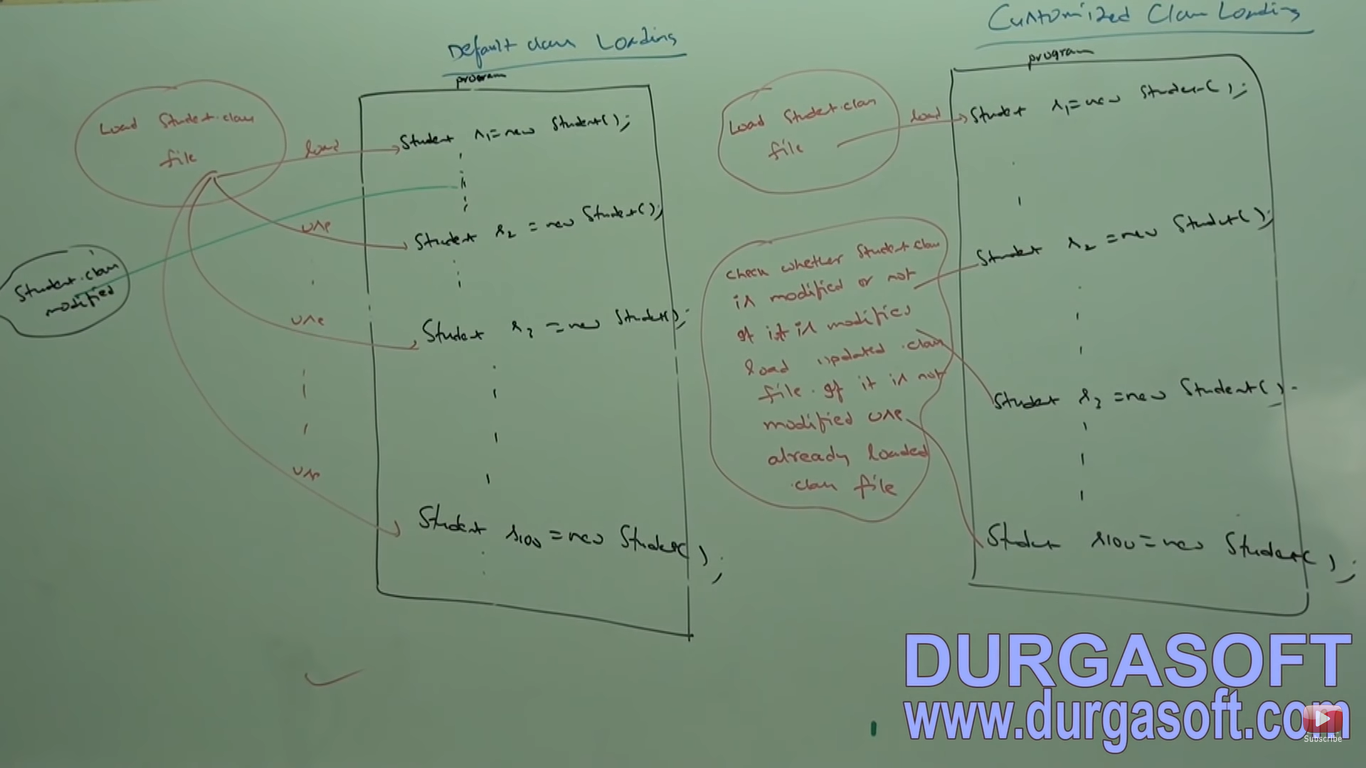 Default class Loading
program
Load Student.class
file
load
Student s1=new Student();
use
Student s2 = new Student();
Student.class
modified
use
Student s3 = new Student();
use
Student s100 = new Student();
Customized Class Loading
program
Load Student.class
file
load
Student s1=new Student();
check whether Student.class
is modified or not
if it is modified
load updated .class
file. if it is not
modified use
already loaded
.class file
Student s2 = new Student();
Student s3 = new Student()
Student s100 = new Student();
DURGASOFT
www.durgasoft.com
Subscribe